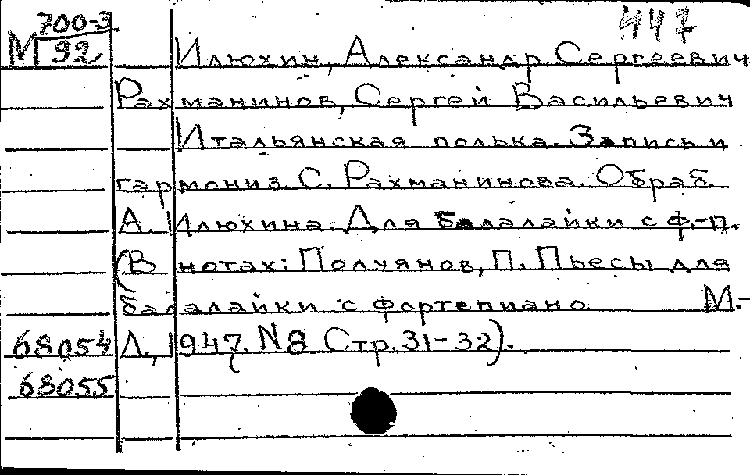 700-3 447
М 92 Илюхин, Александр Сергеевич
Рахманинов, Сергей Васильевич
Итальянская полька. Запись и
гармониз. С. Рахманинова. Обраб.
А. Илюхина. Для балалайки с ф.-п.
(В нотах: Полуянов, П. Пьесы для
балалайки с фортепиано М.-
68054 Л., 1947. N8 Стр. 31-32).
68055